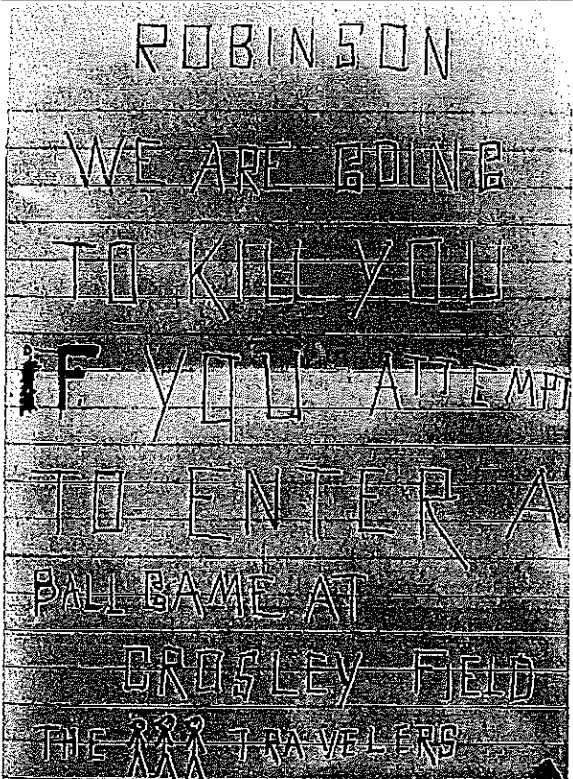 ROBINSON
WE ARE GOING
TO KILL YOU
IF YOU ATTEMPT
TO ENTER A
BALL GAME AT
CROSLEY FIELD
THE TRAVELERS